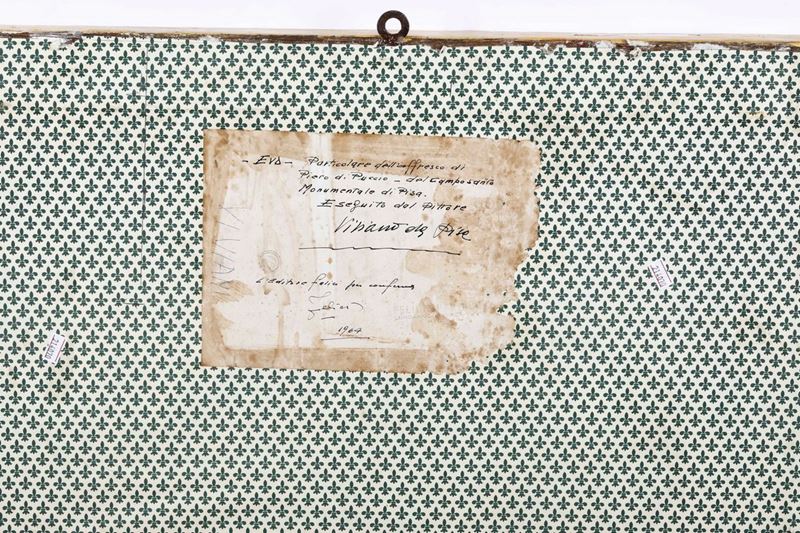 - EVA - Particolare dell'affresco di
Piero di Puccio - del Camposanto
Monumentale di Pisa.
Eseguito dal Pittore
Viviano da Pisa
L'Editore Felici per conferma
Felici
1964
FELICI